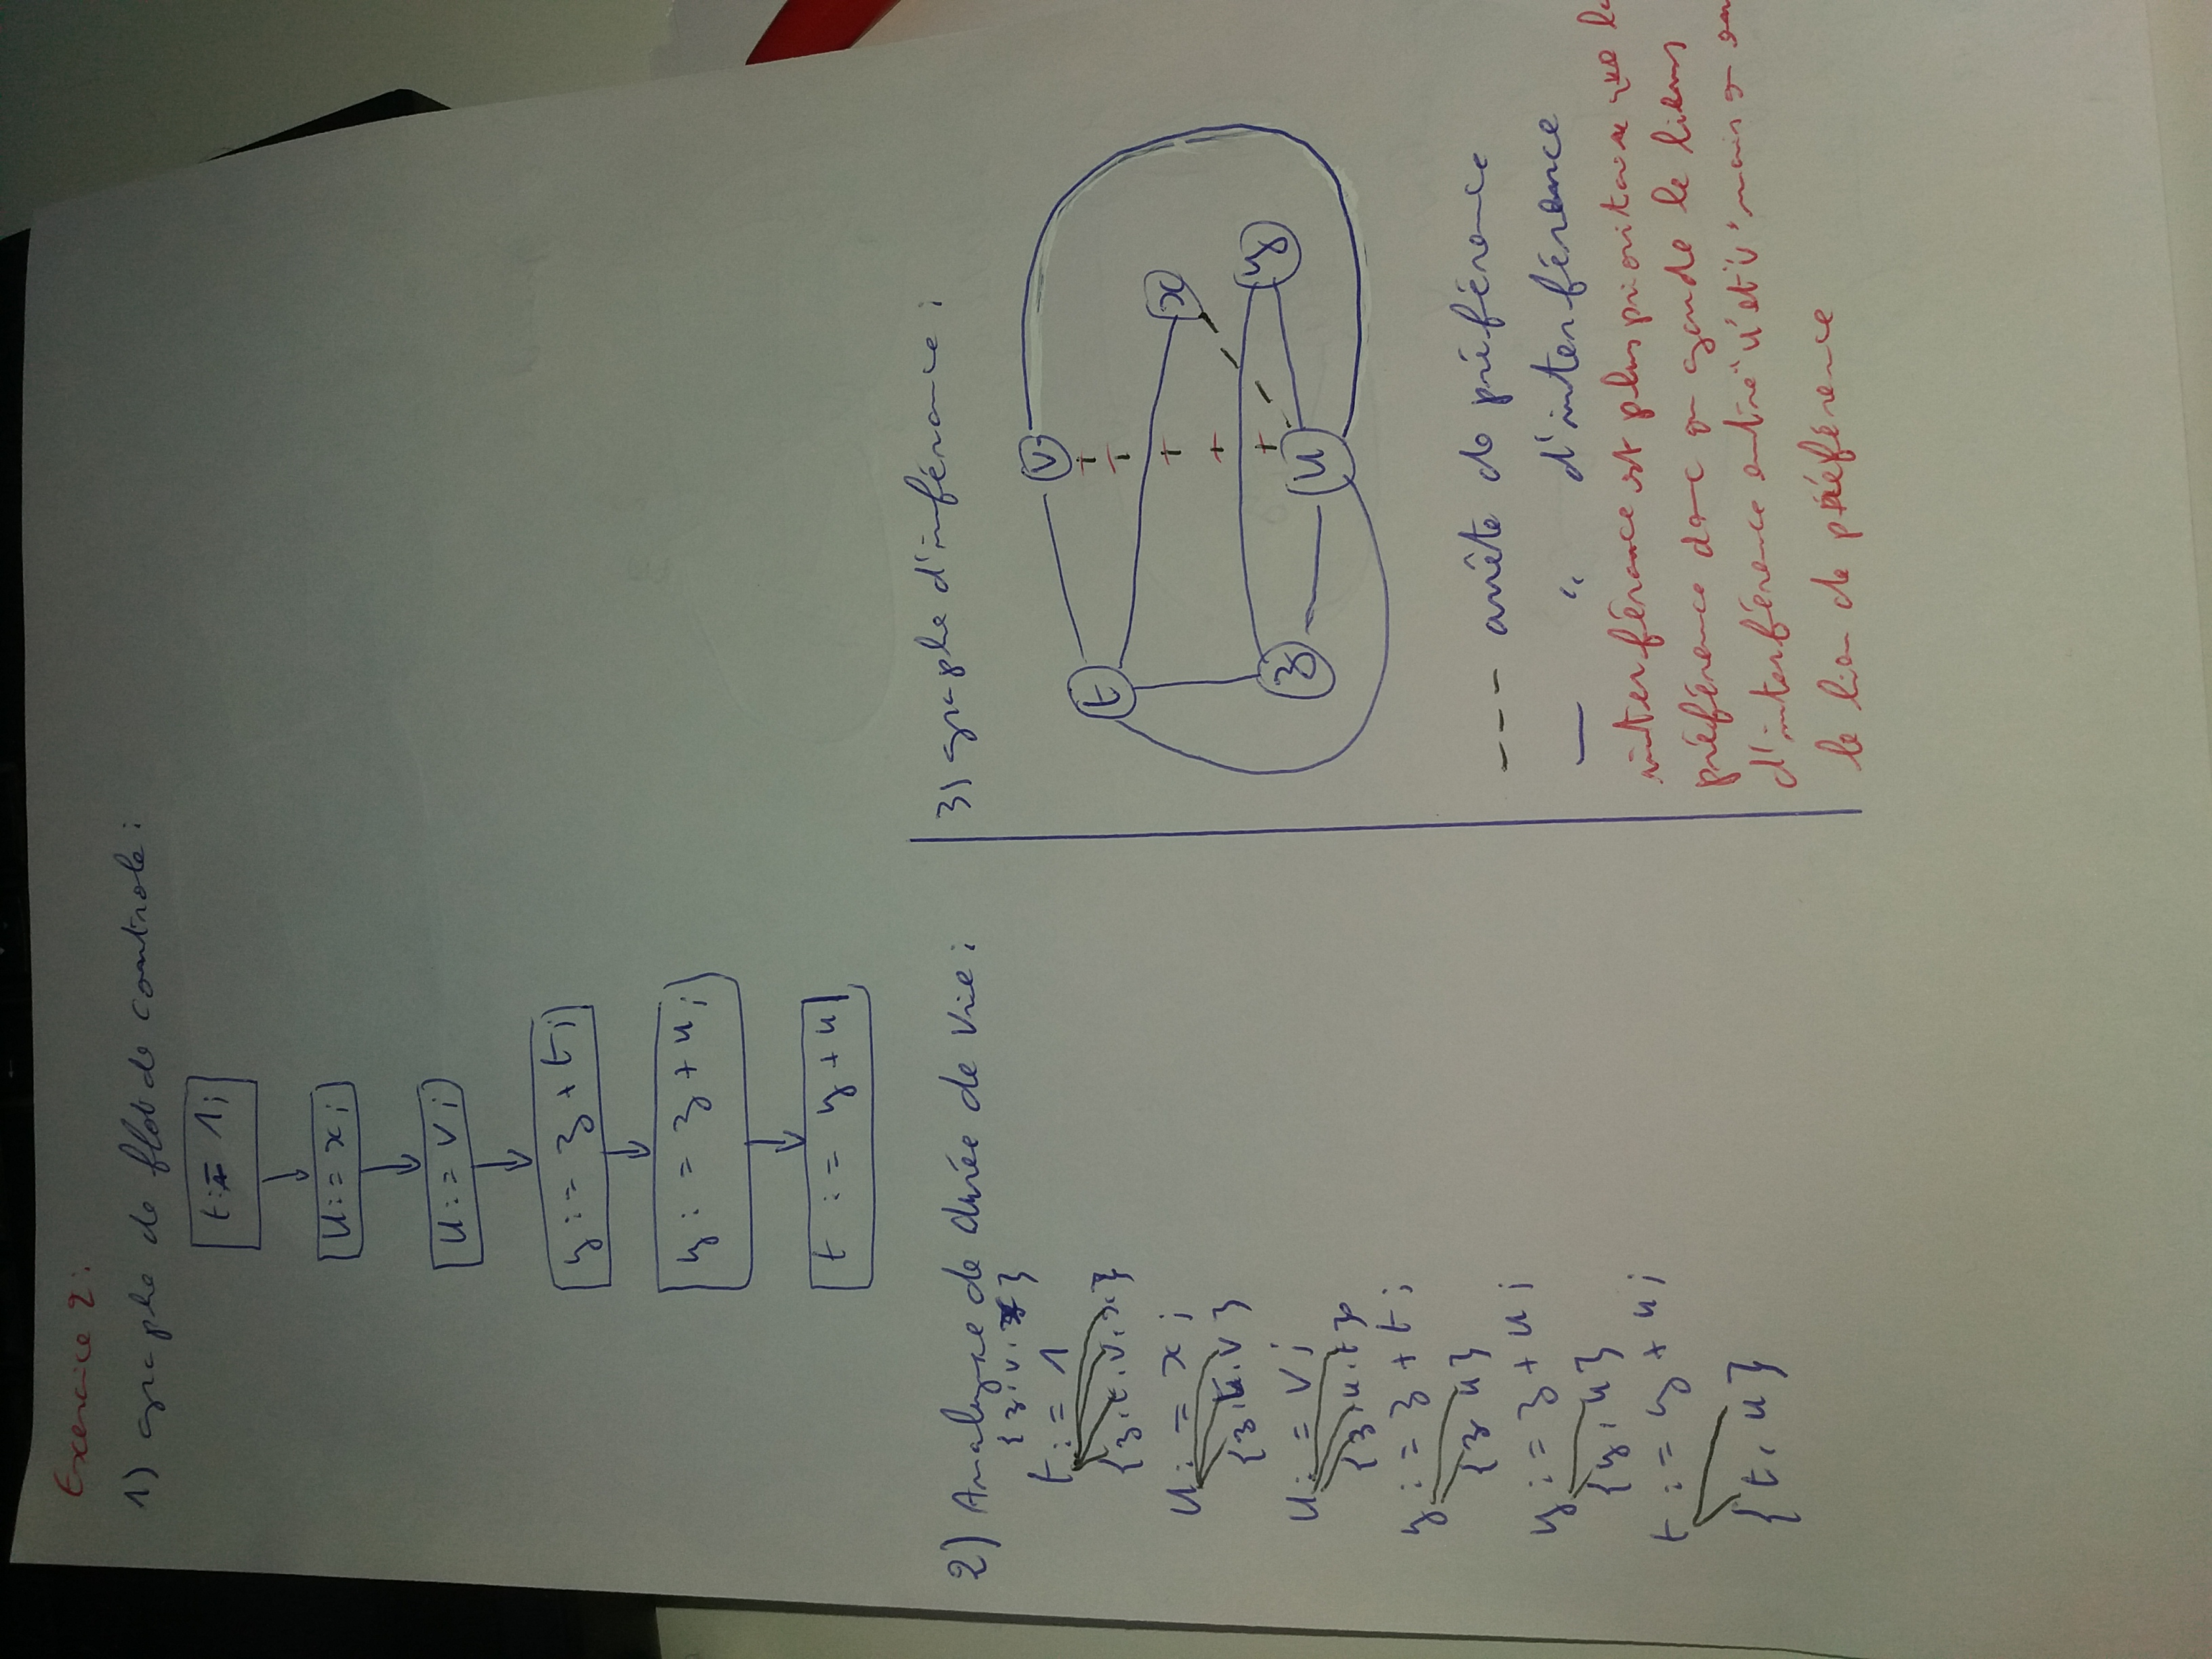 Exercice 2:
1) graphe de flot de controle:
t := 1;
u := x;
u := v;
y := z + t;
y := z + u;
t := y + u
2) Analyse de durée de vie:
{z, v, x}
t := 1
{z, t, v, x}
u := x;
{z, t, v}
u := v;
{z, u, t}
y := z + t;
{z u}
y := z + u;
{y, u}
t := y + u;
{t, u}
3) graphe d'inférance:
v
t
x
z
u
y
--- arrête de préférence
— " d'interférence
interférance est plus prioritaire que la
préférence donc on garde le liens
d'interférence entre "u" et "v" mais on
le lien de préférence